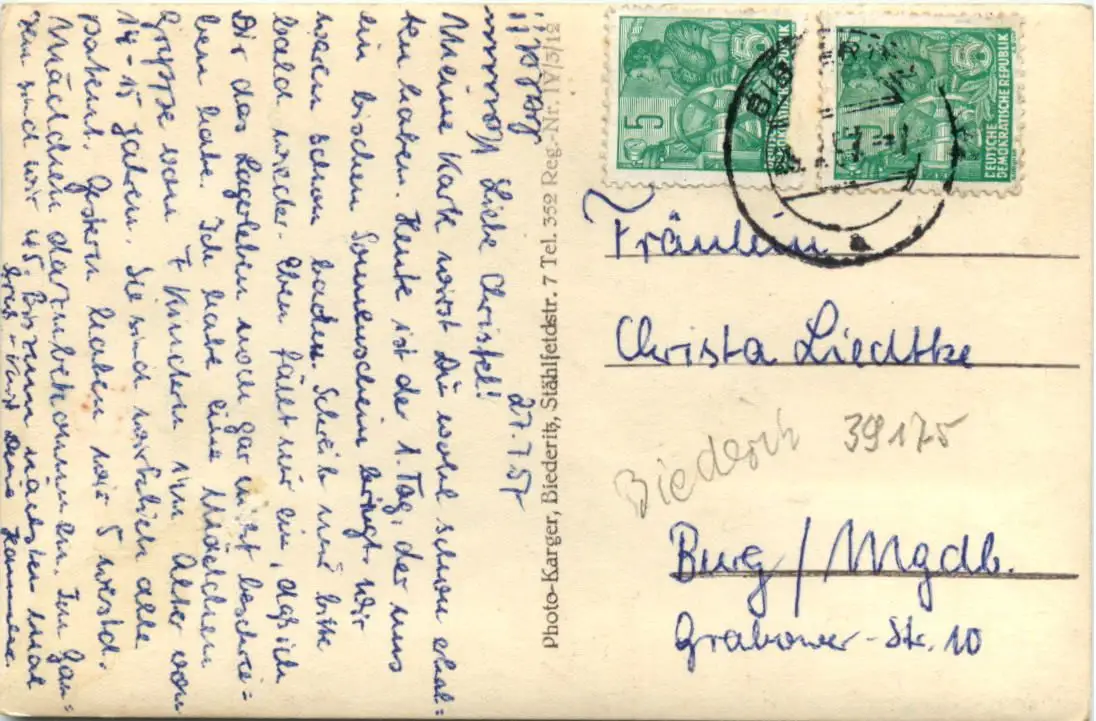 27.7.57
Liebe Christel!
Meine Karte wirst Du wohl schon erhal=
ten haben. Heute ist der 1. Tag, der uns
ein bischen Sonnenschein bringt. Wir
waren schon baden. Schreib mir bitte
bald wieder. Eben fällt mir ein, daß ich
Dir das Lagerleben noch gar nicht beschrie=
ben habe. Ich habe eine Mädchen
gruppe von 7 Kindern im Alter von
14-15 Jahren. Sie sind wirklich alle
patent. Gestern haben wir 5 westd.
Mädchen dazubekommen. Im Gan=
zen sind wir 45. Bis zum nächsten mal
Deine Hannelore.
Photo-Karger, Biederitz, Stählfeldstr. 7 Tel. 352 Reg.-Nr. IV/3/12
5
DEUTSCHE
DEMOKRATISCHE REPUBLIK
5
DEUTSCHE
DEMOKRATISCHE REPUBLIK
Fräulein
Christa Liedtke
Biederitz 39175
Burg / Mgdb.
Grabower-Str. 10